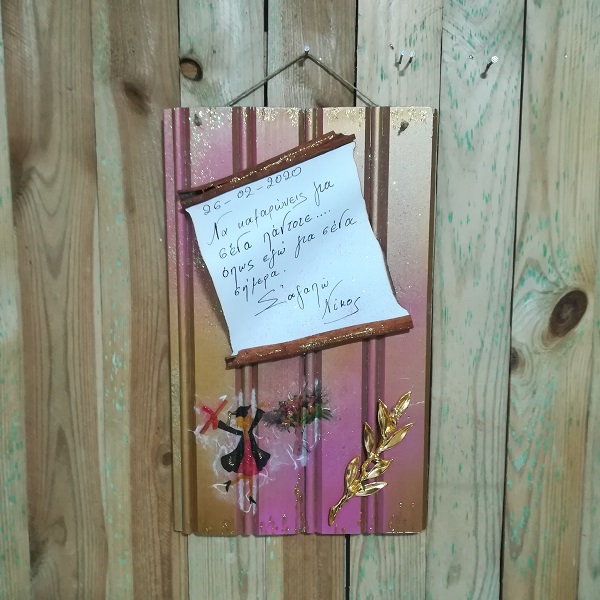 26-02-2020
Να καμαρώνεις για
σένα πάντοτε....
όπως εγώ για σένα
σήμερα.
Σ'αγαπώ
Νίκος